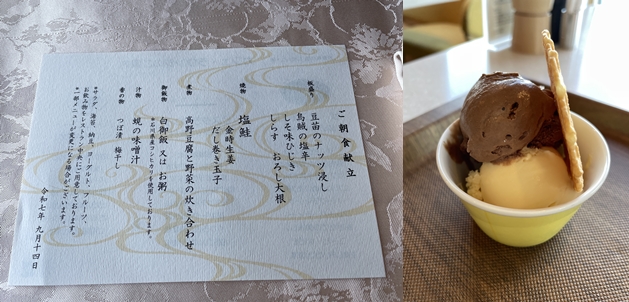 ご朝食献立
板盛り
豆苗のナッツ浸し
烏賊の塩辛
しそ味ひじき
しらす おろし大根
焼物
塩鮭
金時生姜
だし巻き玉子
煮物
高野豆腐と野菜の炊き合わせ
御飯物
白御飯 又は お粥
*石川県産コシヒカリを使用しております。
汁物
蜆の味噌汁
香の物
つぼ漬 梅干し
*サラダ、海苔、納豆、ヨーグルト、フルーツ、
お飲み物もレストラン中央にご用意しております。
*一部メニューが変更になる場合がございます。
令和七年 九月十四日